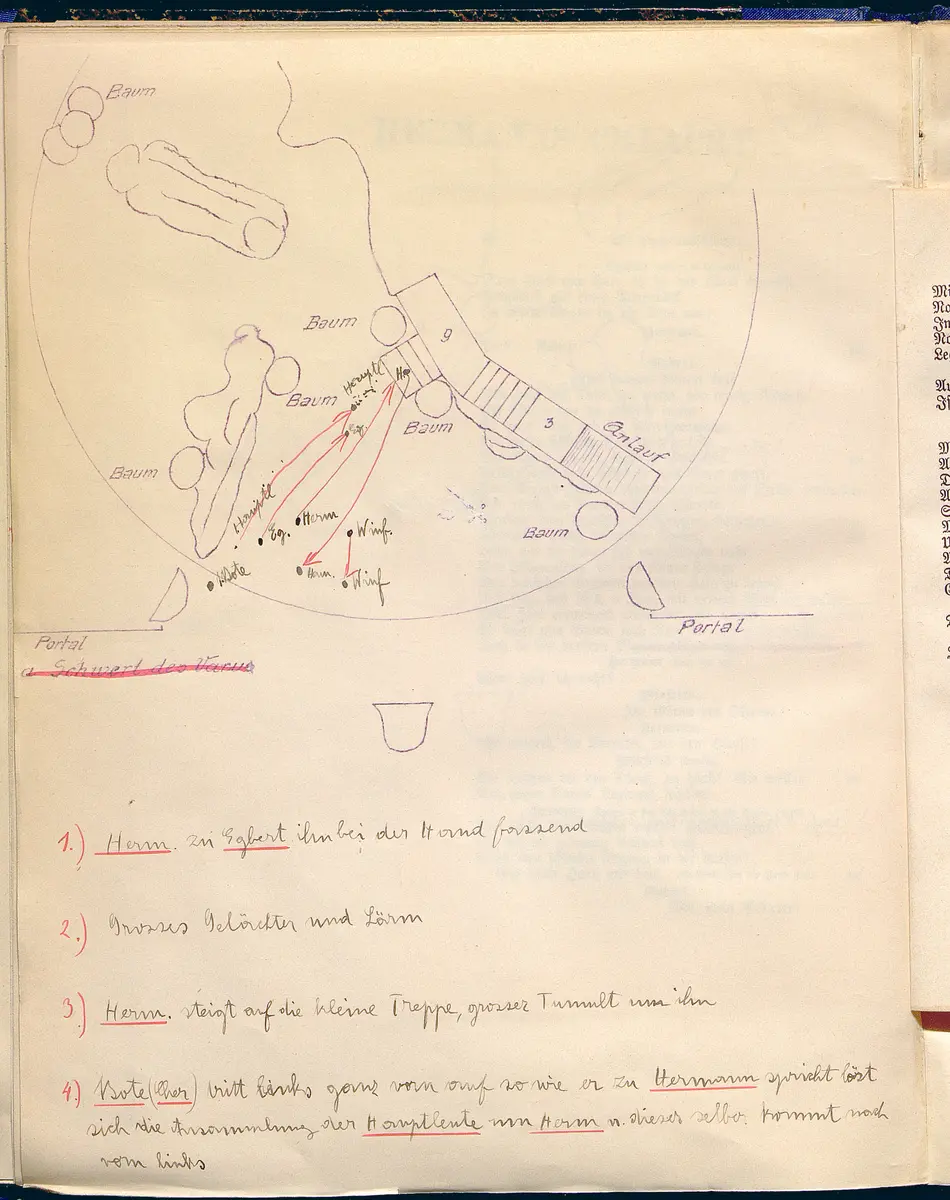 Baum
Baum
9
Hauptl
He
Baum
Baum
3
Anlauf
Baum
Hauptl
Eg.
Herm
Winf.
Baum
Bote
Herm.
Winf
Eg.
Portal
Portal
a Schwert des Varus
1.) Herm. zu Egbert ihn bei der Hand fassend
2.) Grosses Gelächter und Lärm
3) Herm. steigt auf die kleine Treppe, grosser Tumult um ihn
4.) Bote (Cher) tritt links ganz vorn auf so wie er zu Hermann spricht löst
sich die Ansammlung der Hauptleute um Herm u. dieser selber kommt nach
vorn links
Mi
No
In
No
Le